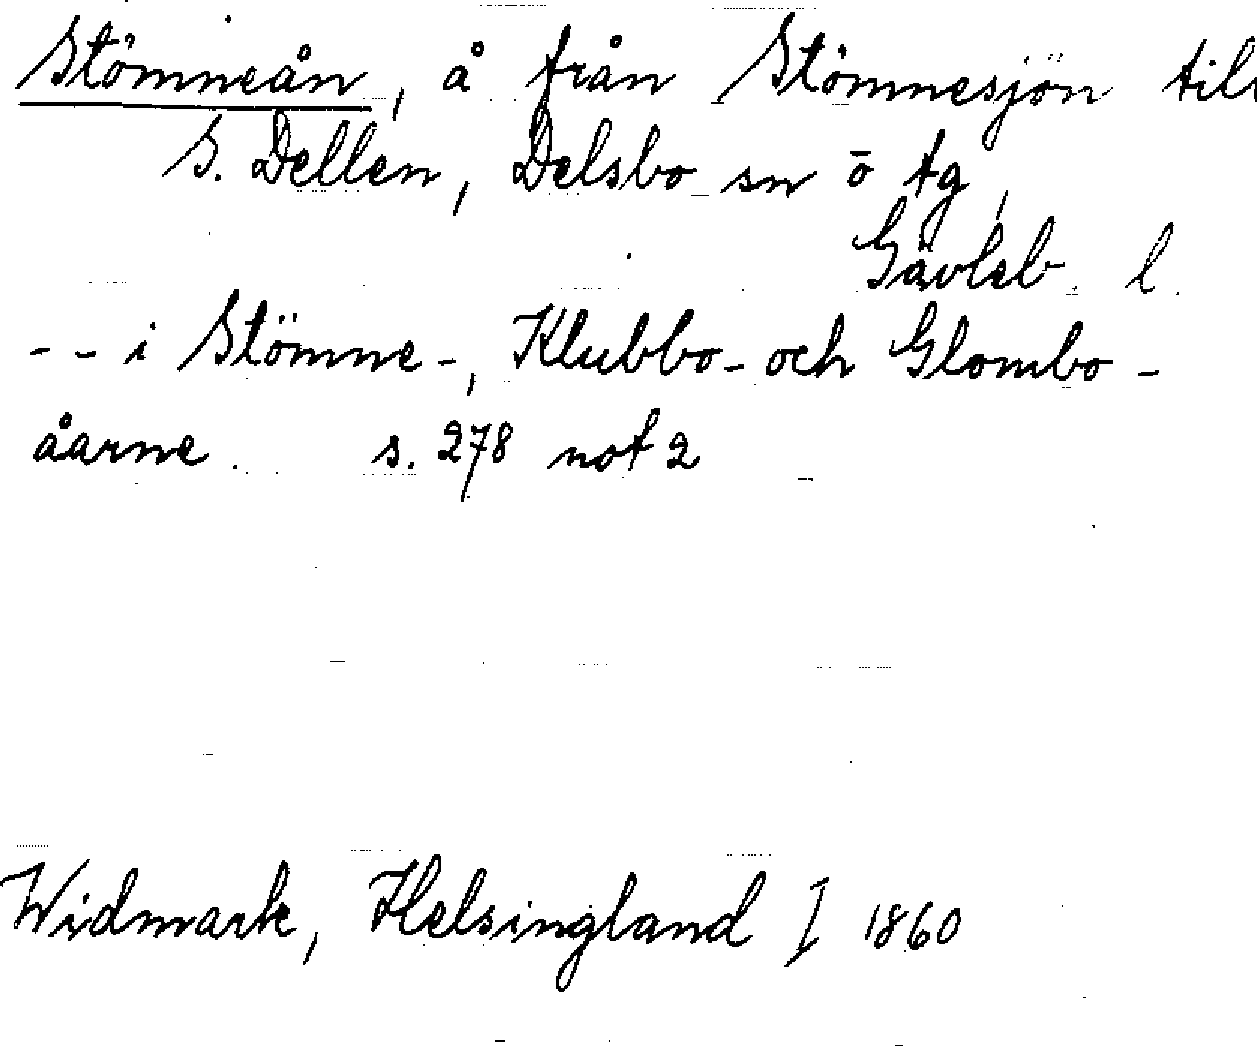 Stömneån, å från Stömnesjön till
S. Dellen, Delsbo sn o tg,
Gävleb. l.
- - i Stömne-, Klubbo- och Glombo-
åarne. s. 278 not 2
Widmark, Helsingland I 1860